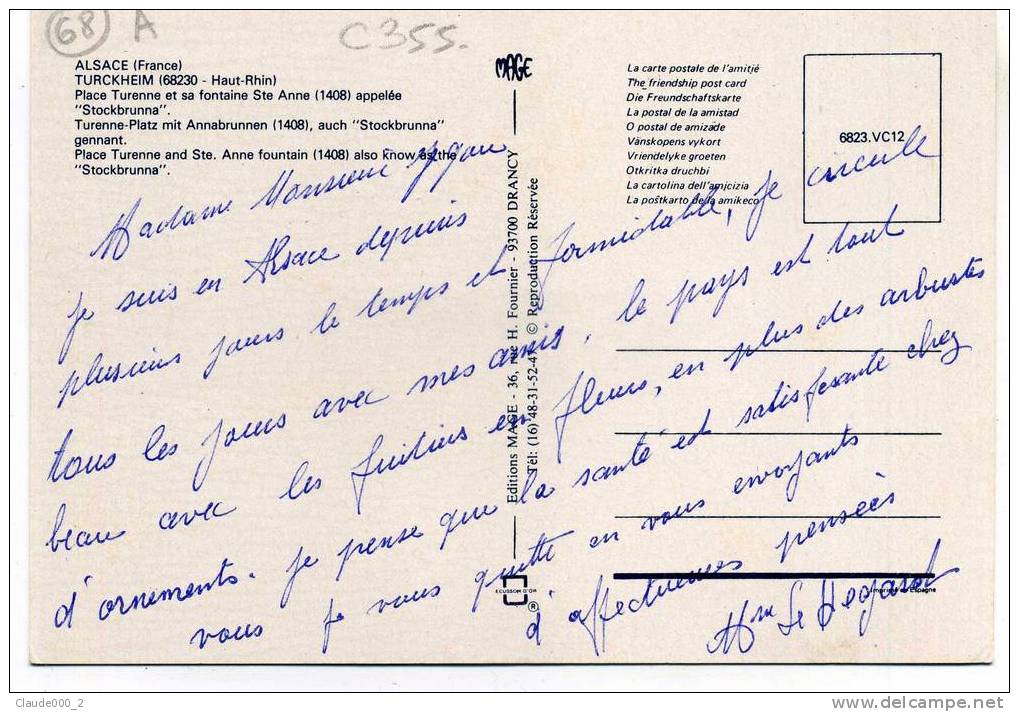 68 A
C355.
ALSACE (France)
TURCKHEIM (68230 - Haut-Rhin)
Place Turenne et sa fontaine Ste Anne (1408) appelée
"Stockbrunna".
Turenne-Platz mit Annabrunnen (1408), auch "Stockbrunna"
gennant.
Place Turenne and Ste. Anne fountain (1408) also know as the
"Stockbrunna".
MAGE
Editions MAGE - 36, rue H. Fournier - 93700 DRANCY
Tél: (16) 48-31-52-47 © Reproduction Réservée
ECUSSON D'OR
®
La carte postale de l'amitié
The friendship post card
Die Freundschaftskarte
La postal de la amistad
O postal de amizade
Vänskopens vykort
Vriendelyke groeten
Otkritka druchbi
La cartolina dell'amicizia
La poŝtkarto de la amikeco
6823.VC12
Imprimé en Espagne
Madame Monsieur
je suis en Alsace depuis
plusieurs jours le temps est formidable, je circule
tous les jours avec mes amis. le pays est tout
beau avec les fruitiers en fleurs, en plus des arbustes
d'ornements. je pense que la santé est satisfesante chez
vous je vous quitte en vous envoyants
d'affectueuses pensées
Mme Le Hegarat
Claude000_2
delcampe.net